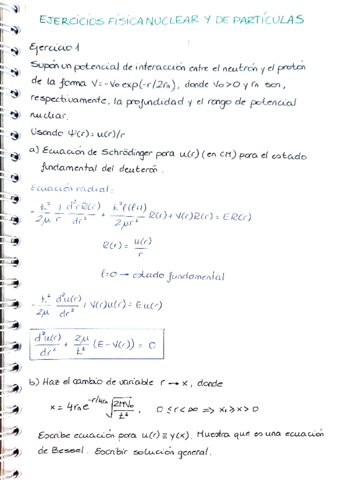 EJERCICIOS FÍSICA NUCLEAR Y DE PARTÍCULAS
Ejercicio 1
Supón un potencial de interacción entre el neutrón y el protón
de la forma V=-Vo exp(-r/2rn), donde Vo>0 y rn son,
respectivamente, la profundidad y el rango de potencial
nuclear.
Usando Ψ(r)=u(r)/r
a) Ecuación de Schrödinger para u(r) (en CM) para el estado
fundamental del deuterón.
Ecuación radial:
-ħ²/2μ 1/r d²rR(r)/dr² + ħ²ℓ(ℓ+1)/2μr² R(r) + V(r)R(r) = ER(r)
R(r) = u(r)/r
ℓ=0 → estado fundamental
-ħ²/2μ d²u(r)/dr² + V(r)u(r) = Eu(r)
d²u(r)/dr² + 2μ/ħ² (E-V(r)) = 0
b) Haz el cambio de variable r → x, donde
x = 4rn e^(-r/4rn) √(2MVo/ħ²), 0≤r<∞ ⇒ x₁≥x>0
Escribe ecuación para u(r)≡y(x). Muestra que es una ecuación
de Bessel. Escribir solución general.